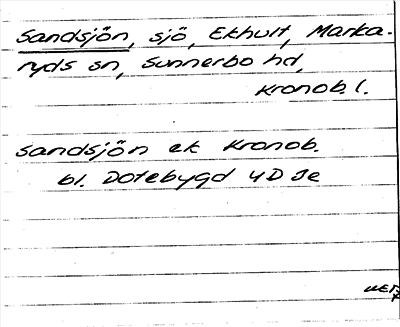 Sandsjön, sjö, Ekhult, Marka-
ryds sn, Sunnerbo hd,
Kronob. l.
Sandsjön ek Kronob.
bl. Dotebygd 4D Se